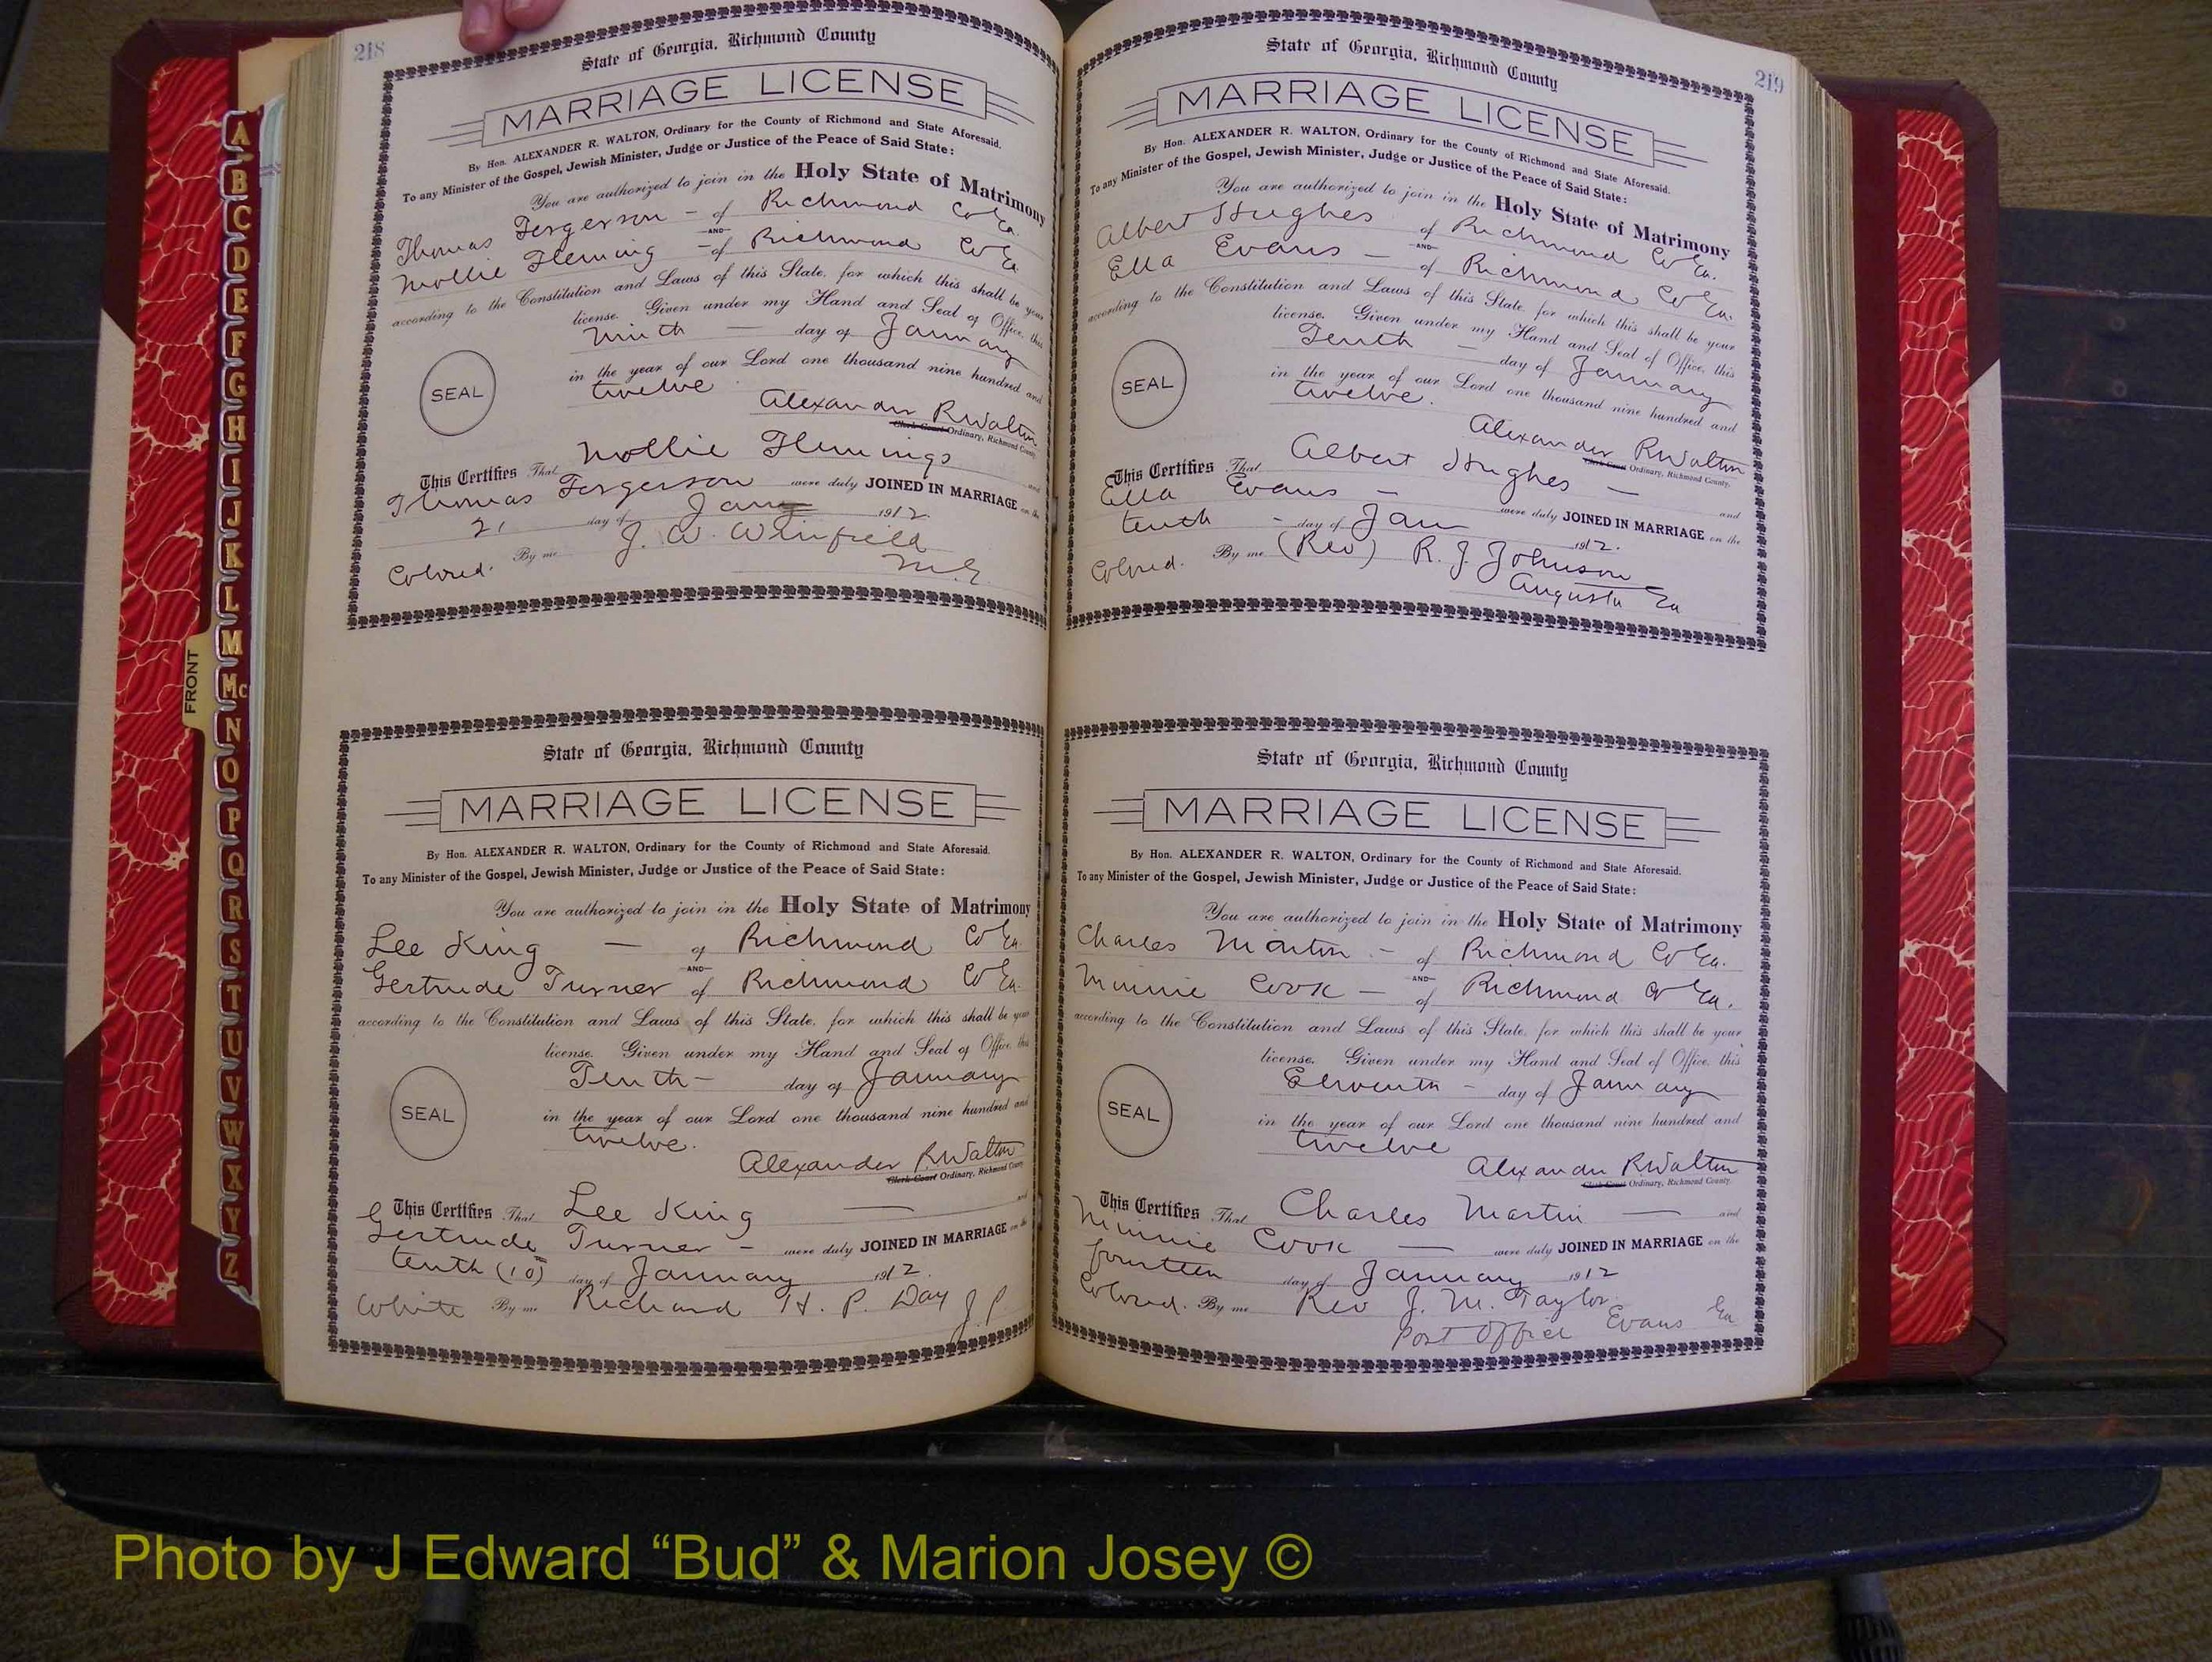 218
State of Georgia, Richmond County
MARRIAGE LICENSE
By Hon. ALEXANDER R. WALTON, Ordinary for the County of Richmond and State Aforesaid.
To any Minister of the Gospel, Jewish Minister, Judge or Justice of the Peace of Said State:
You are authorized to join in the Holy State of Matrimony
Thomas Fergerson - of Richmond Co Ga.
AND
Mollie Fleming - of Richmond Co Ga
according to the Constitution and Laws of this State, for which this shall be your
license. Given under my Hand and Seal of Office, this
Ninth - day of January
SEAL
in the year of our Lord one thousand nine hundred and
twelve
Alexander R Walton
Clerk Court Ordinary, Richmond County
This Certifies That Mollie Flemings and
Thomas Fergerson were duly JOINED IN MARRIAGE on the
21 day of Jany 1912
Colored. By me J. W. Winfield
M.G.
State of Georgia, Richmond County
MARRIAGE LICENSE
By Hon. ALEXANDER R. WALTON, Ordinary for the County of Richmond and State Aforesaid.
To any Minister of the Gospel, Jewish Minister, Judge or Justice of the Peace of Said State:
You are authorized to join in the Holy State of Matrimony
Lee King - of Richmond Co Ga.
AND
Gertrude Turner of Richmond Co Ga.
according to the Constitution and Laws of this State, for which this shall be your
license. Given under my Hand and Seal of Office, this
Tenth - day of January
SEAL
in the year of our Lord one thousand nine hundred and
twelve.
Alexander R. Walton
Clerk Court Ordinary, Richmond County
This Certifies That Lee King - and
Gertrude Turner - were duly JOINED IN MARRIAGE on the
tenth (10) day of January 1912.
White By me Richard H. P. Day J. P.
219
State of Georgia, Richmond County
MARRIAGE LICENSE
By Hon. ALEXANDER R. WALTON, Ordinary for the County of Richmond and State Aforesaid.
To any Minister of the Gospel, Jewish Minister, Judge or Justice of the Peace of Said State:
You are authorized to join in the Holy State of Matrimony
Albert Hughes of Richmond Co Ga.
AND
Ella Evans - of Richmond Co Ga.
according to the Constitution and Laws of this State, for which this shall be your
license. Given under my Hand and Seal of Office, this
Tenth - day of January
SEAL
in the year of our Lord one thousand nine hundred and
twelve.
Alexander R Walton
Clerk Court Ordinary, Richmond County
This Certifies That Albert Hughes - and
Ella Evans - were duly JOINED IN MARRIAGE on the
tenth - day of Jan 1912.
Colored. By me (Rev) R. J. Johnson
Augusta Ga
State of Georgia, Richmond County
MARRIAGE LICENSE
By Hon. ALEXANDER R. WALTON, Ordinary for the County of Richmond and State Aforesaid.
To any Minister of the Gospel, Jewish Minister, Judge or Justice of the Peace of Said State:
You are authorized to join in the Holy State of Matrimony
Charles Martin - of Richmond Co Ga.
AND
Minnie Cook - of Richmond Co Ga.
according to the Constitution and Laws of this State, for which this shall be your
license. Given under my Hand and Seal of Office, this
Eleventh - day of January
SEAL
in the year of our Lord one thousand nine hundred and
twelve
Alexander R. Walton
Clerk Court Ordinary, Richmond County
This Certifies That Charles Martin - and
Minnie Cook - were duly JOINED IN MARRIAGE on the
fourteen day of January 1912
Colored. By me Rev J. M. Taylor.
Post Office Evans Ga
A
B
C
D
E
F
G
H
I
J
K
L
M
Mc
N
O
P
Q
R
S
T
U
V
W
X
Y
Z
FRONT
Photo by J Edward “Bud” & Marion Josey ©